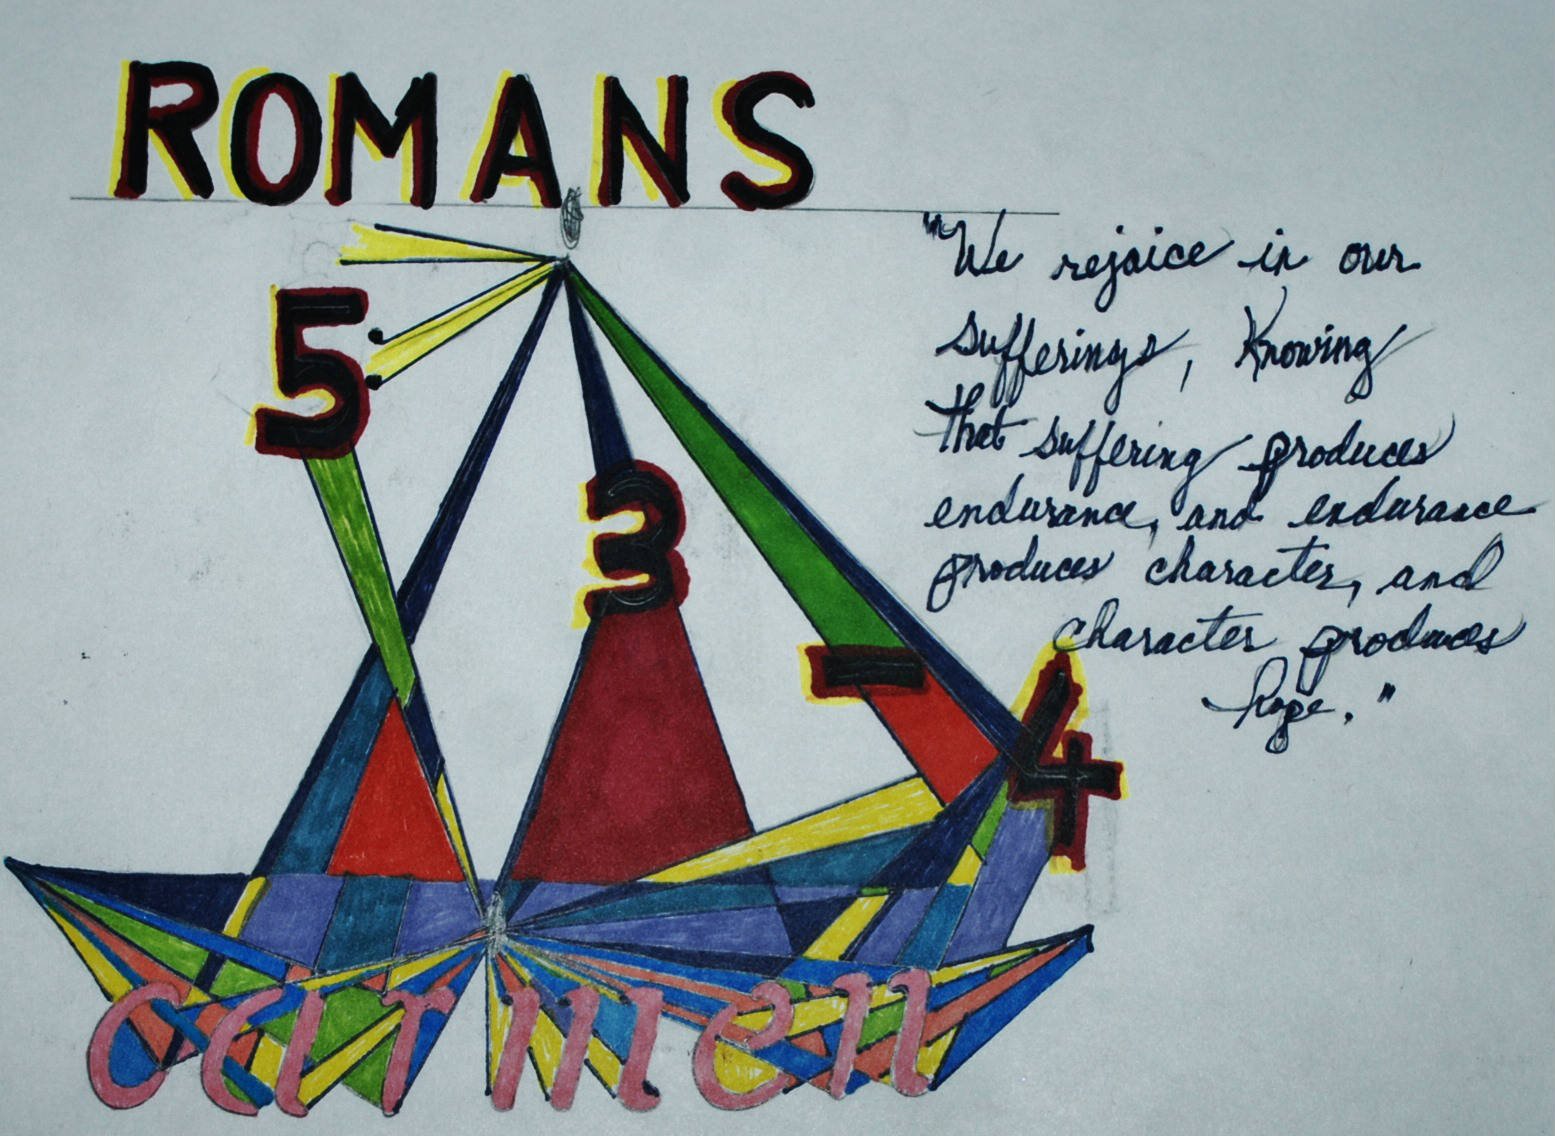 ROMANS
5
3
- 4
"We rejoice in our
sufferings, Knowing
that suffering produces
endurance, and endurance
produces character, and
character produces
hope."
carmen